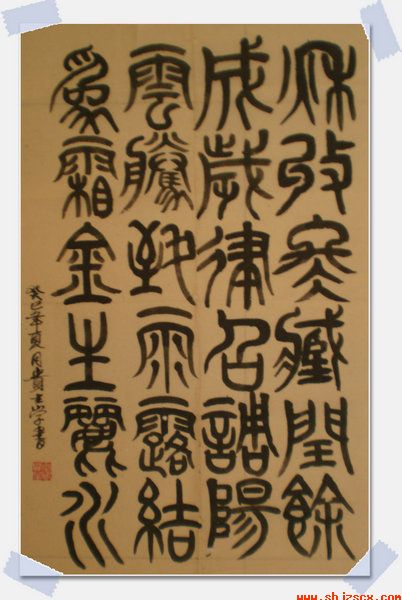 秋收冬藏閏餘
成歲律召調陽
雲騰致雨露結
為霜金生麗水
癸巳年夏月貴學書
www.shizscx.com